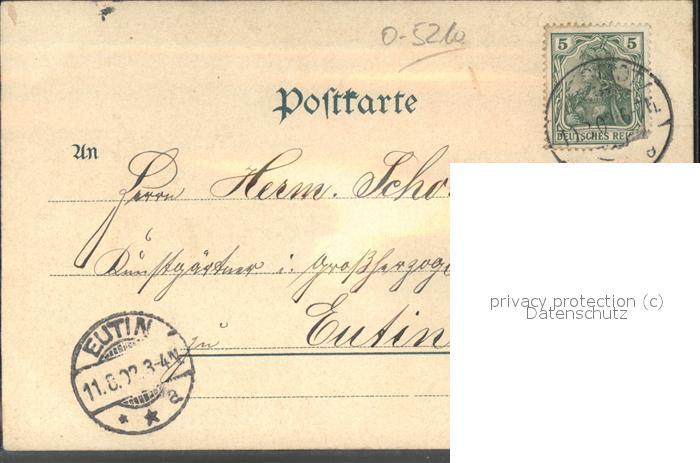 0-5210
5 5
DEUTSCHES REI
Postkarte
An
Herrn Herm. Scho
Kunstgärtner i. Großherzogl
zu Eutin
EUTIN
11.8.02.3-4N
* * a
privacy protection (c)
Datenschutz